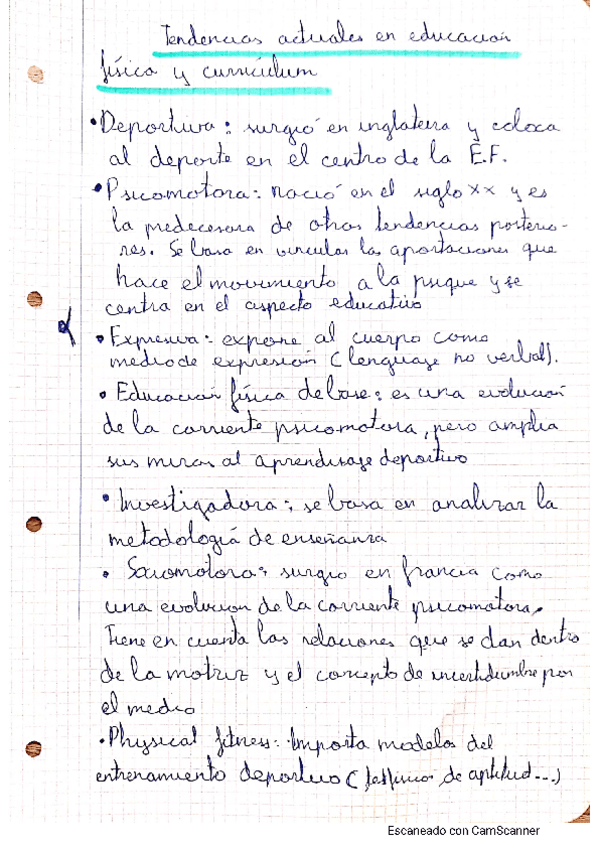 Tendencias actuales en educación
física y currículum
• Deportiva: surgió en inglaterra y coloca
al deporte en el centro de la E.F.
• Psicomotora: nació en el siglo xx y es
la predecesora de otras tendencias posterio-
res. Se basa en vincular las aportaciones que
hace el movimiento a la psique y se
centra en el aspecto educativo
• Expresiva: expone al cuerpo como
medio de expresión (lenguaje no verbal).
• Educación física de base: es una evolución
de la corriente psicomotora, pero amplia
sus miras al aprendizaje deportivo
• Investigadora: se basa en analizar la
metodología de enseñanza
• Sociomotora: surgio en francia como
una evolucion de la corriente psicomotora.
Tiene en cuenta las relaciones que se dan dentro
de la motriz y el concepto de incertidumbre por
el medio
• Physical fitness: Importa modelos del
entrenamiento deportivo ( de aptitud...)
Escaneado con CamScanner